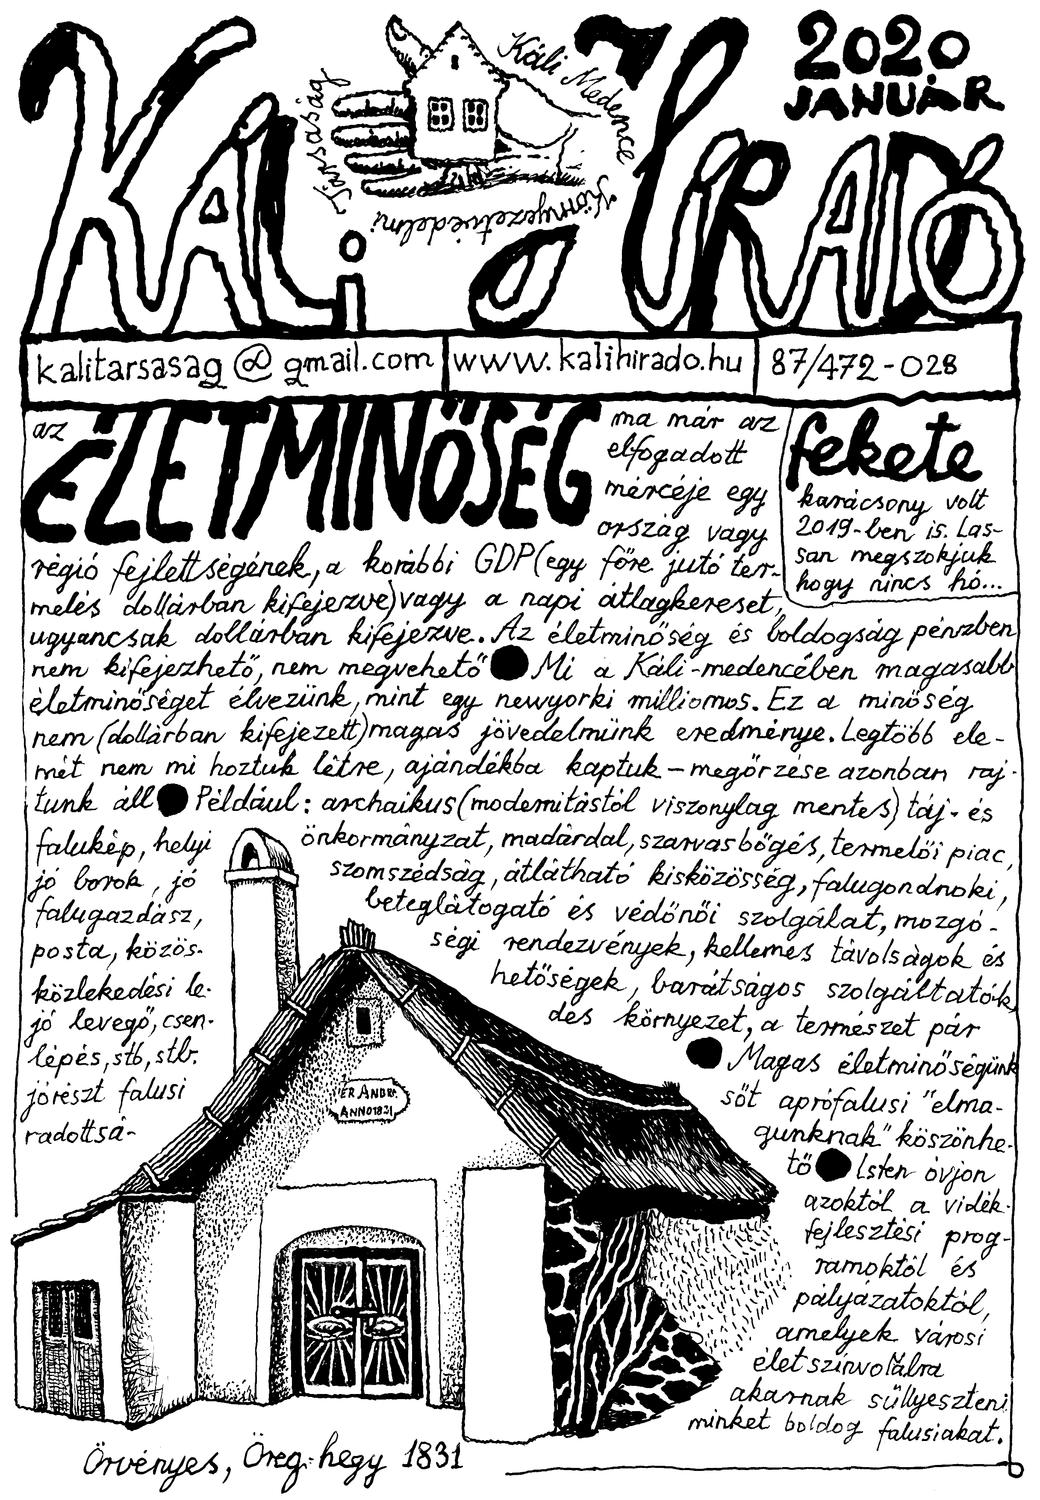 KÁLi HÍRADÓ
2020
JANUÁR
Káli Medence Környezetvédelmi Társaság
kalitarsasag@gmail.com www.kalihirado.hu 87/472-028
az ÉLETMINŐSÉG ma már az
elfogadott
mércéje egy
ország vagy
régió fejlettségének, a korábbi GDP (egy főre jutó ter-
melés dollárban kifejezve) vagy a napi átlagkereset,
ugyancsak dollárban kifejezve. Az életminőség és boldogság pénzben
nem kifejezhető, nem megvehető ● Mi a Káli-medencében magasabb
életminőséget élvezünk, mint egy newyorki milliomos. Ez a minőség
nem (dollárban kifejezett) magas jövedelmünk eredménye. Legtöbb ele-
mét nem mi hoztuk létre, ajándékba kaptuk – megőrzése azonban raj-
tunk áll ● Például: archaikus (modernitástól viszonylag mentes) táj- és
falukép, helyi önkormányzat, madárdal, szarvasbőgés, termelői piac,
jó borok, jó szomszédság, átlátható kisközösség, falugondnoki,
falugazdász, beteglátogató és védőnői szolgálat, mozgó-
posta, közös- ségi rendezvények, kellemes távolságok és
közlekedési le- hetőségek, barátságos szolgáltatók,
jó levegő, csen- des környezet, a természet pár
lépés, stb, stb. ● Magas életminőségünk
jórészt falusi sőt aprófalusi "elma-
radottsá- gunknak" köszönhe-
tő ● Isten óvjon
azoktól a vidék-
fejlesztési prog-
ramoktól és
pályázatoktól,
amelyek városi
életszínvonalra
akarnak süllyeszteni
minket boldog falusiakat.
fekete
karácsony volt
2019-ben is. Las-
san megszokjuk
hogy nincs hó...
ANNO 1831
Örvényes, Öreg-hegy 1831